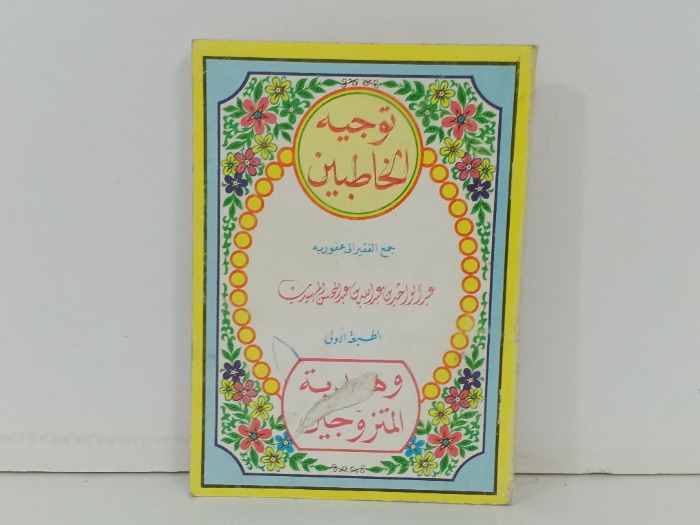 توجيه
الخاطبين
جمع الفقير إلى عفو ربه
عبد الواحد بن عبد الله بن عبد المحسن المهيدب
الطبعة الأولى
وهدية
المتزوجين